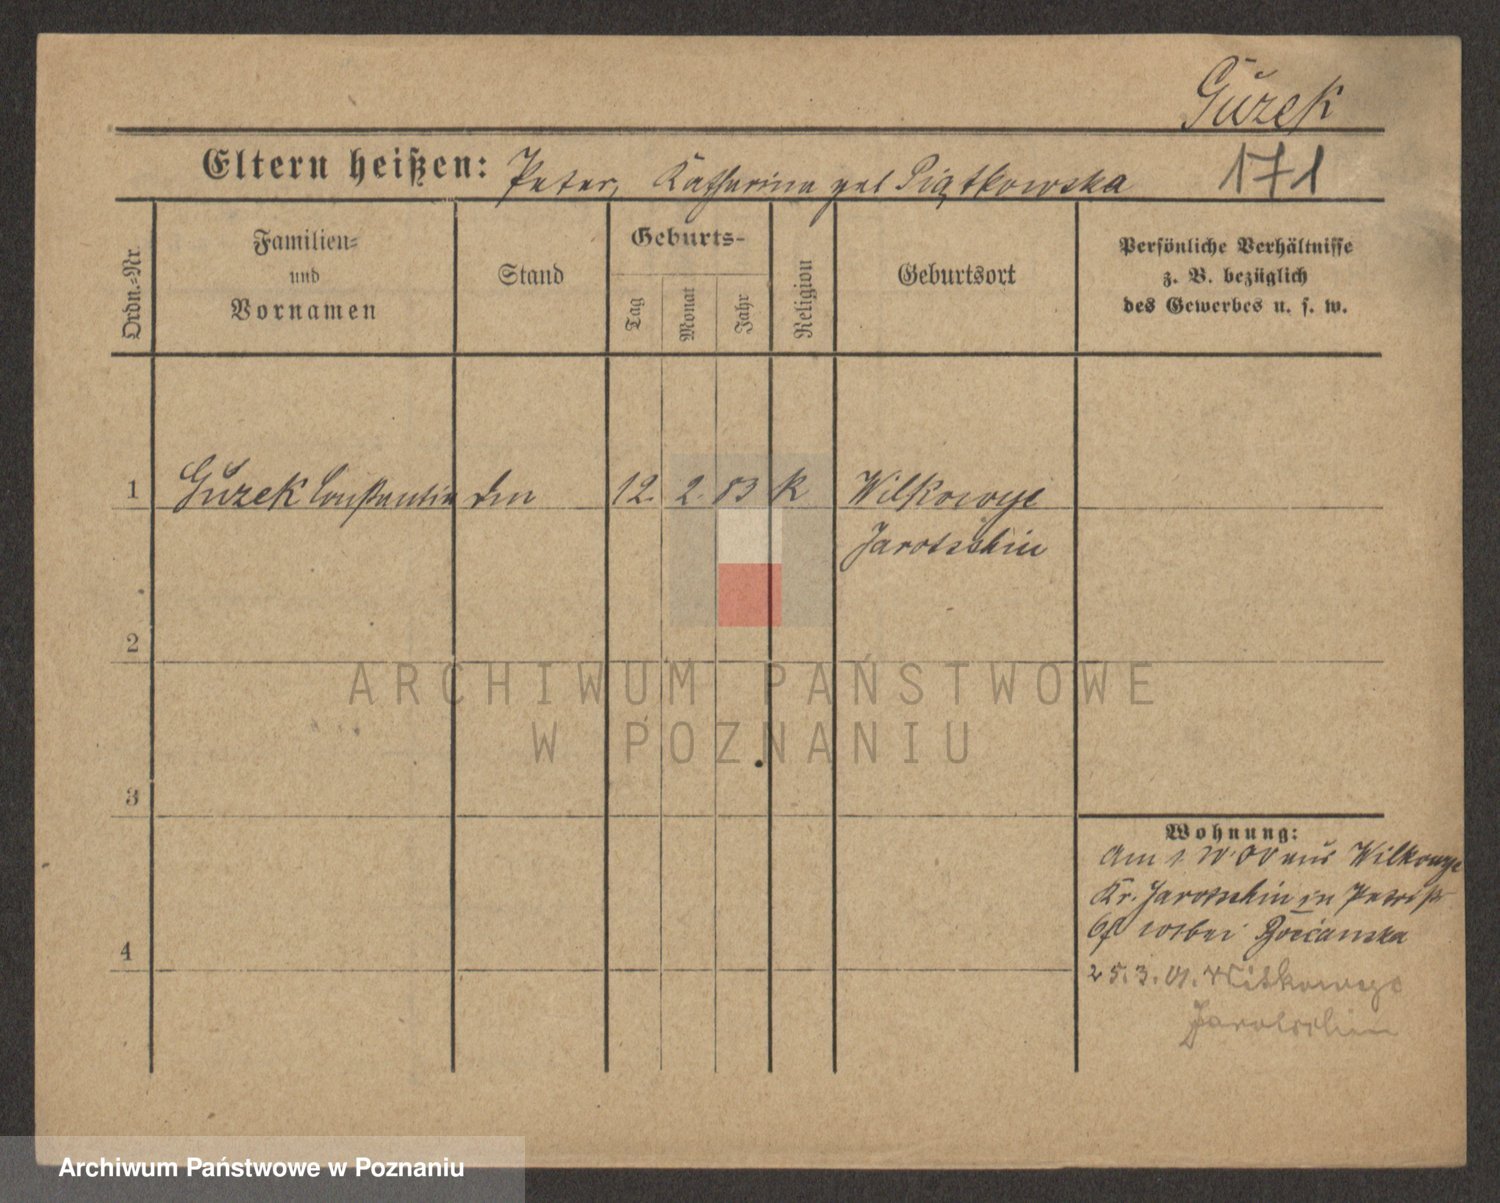 Gużek
Eltern heißen: Peter, Katharina geb Piątkowska 171
Ordn.=Nr.
Familien=
und
Vornamen
Stand
Geburts-
Tag
Monat
Jahr
Religion
Geburtsort
Persönliche Verhältnisse
z. B. bezüglich
des Gewerbes u. s. w.
1 Guzek Constantin 12. 2. 83 K Wilkowye
Jarotschin
2
ARCHIWUM PAŃSTWOWE
W POZNANIU
3
Wohnung:
am 1 aus Wilkowye
Kr. Jarotschin in
bei
4
25.3.01. Wilkowye
Jarotschin
Archiwum Państwowe w Poznaniu